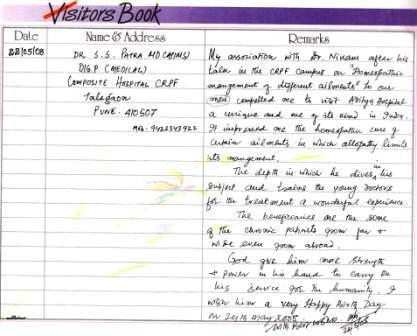 Visitors Book
Date Name & Address Remarks
22/05/08
DR S.S. PATRA MD (AIIMS)
DIG.P (MEDICAL)
COMPOSITE HOSPITAL CRPF
Talegaon
PUNE - 410507
My association with Dr. Nikam after his
talk in the CRPF campus on "Homeopathic
management of different ailments" to our
men compelled me to visit Aditya Hospital
a unique and one of its kind in India.
It impressed me the homeopathic cure of
certain ailments in which allopathy limits
its management.
The depth in which he dives in his
subject and trains the young doctors
for the treatment a wonderful experience.
The beneficiaries are the some
of the chronic patients from far &
wide even from abroad.
God give him more strength
& power in his hand to carry on
his service for the humanity. I
wish him a very Happy Birth Day
on 24th may 2008